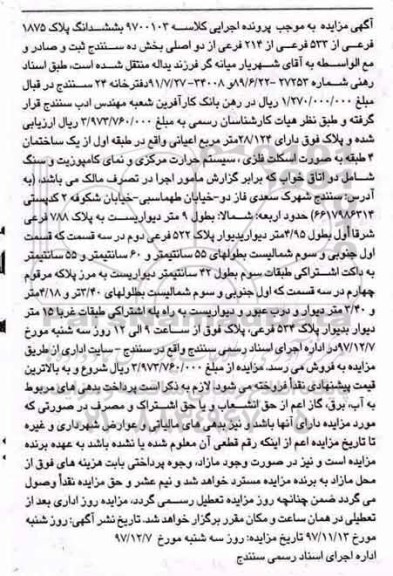 آگهی مزایده به موجب پرونده اجرایی کلاسه ۹۷۰۰۱۰۳ بششدانگ پلاک ۱۸۷۵
فرعی از ۵۳۳ فرعی از ۲۱۴ فرعی از دو اصلی بخش ده سنندج ثبت و صادر و
مع الواسطه به آقای شهریار میانه گر فرزند یداله منتقل شده است، طبق اسناد
رهنی شماره ۲۷۲۵۳ -۸۹/۶/۲۲و ۳۴۰۰۸-۹۱/۷/۲۷دفترخانه ۲۴ سنندج در قبال
مبلغ ۱/۲۷۰/۰۰۰/۰۰۰ ریال در رهن بانک کارآفرین شعبه مهندس ادب سنندج قرار
گرفته و طبق نظر هیات کارشناسان رسمی به مبلغ ۳/۹۷۳/۷۶۰/۰۰۰ ریال ارزیابی
شده و پلاک فوق دارای ۲۸/۱۲۴متر مربع اعیانی واقع در طبقه اول از یک ساختمان
۴ طبقه به صورت اسکلت فلزی ، سیستم حرارت مرکزی و نمای کامپوزیت و سنگ
شامل دو اتاق خواب که برابر گزارش مامور اجرا در تصرف مالک می باشد، (به
آدرس: سنندج شهرک سعدی فاز دو-خیابان طهماسبی-خیابان شکوفه ۲ کدپستی
۶۶۱۷۹۸۶۳۱۴) حدود اربعه: شمالا: بطول ۹ متر دیواریست به پلاک ۷۸۸ فرعی
شرقا اول بطول ۴/۹۵متر دیواربدیوار پلاک ۵۲۲ فرعی دوم در سه قسمت که قسمت
اول جنوبی و سوم شمالیست بطولهای ۵۵ سانتیمتر و ۶۰ سانتیمتر و ۵۵ سانتیمتر
به داکت اشتراکی طبقات سوم بطول ۴۲ سانتیمتر دیواریست به مرز پلاکه مرقوم
چهارم در سه قسمت که اول جنوبی و سوم شمالیست بطولهای ۳/۴۰تر و ۴/۱۸متر
و ۳/۴۰ متر دیوار و درب عبور و دیواریست به راه پله اشتراکی طبقات غربا ۱۵ متر
دیوار بدیوار پلاک ۵۳۴ فرعی، پلاک فوق از ساعت ۹ الی ۱۲ روز سه شنبه مورخ
۹۷/۱۲/۷در اداره اجرای اسناد رسمی سنندج واقع در سنندج - سایت اداری از طریق
مزایده به فروش می رسد. مزایده از مبلغ ۳/۹۷۳/۷۶۰/۰۰۰ ریال شروع و به بالاترین
قیمت پیشنهادی نقداً فروخته می شود، لازم به ذکر است پرداخت بدهی های مربوط
به آب، برق، گاز اعم از حق انشعاب و یا حق اشتراک و مصرف در صورتی که
مورد مزایده دارای آنها باشد و نیز بدهی های مالیاتی و عوارض شهرداری و غیره
تا تاریخ مزایده اعم از اینکه رقم قطعی آن معلوم شده یا نشده باشد به عهده برنده
مزایده است و نیز در صورت وجود مازاد، وجوه پرداختی بابت هزینه های فوق از
محل مازاد به برنده مزایده مسترد خواهد شد و نیم عشر و حق مزایده نقداً وصول
می گردد ضمن چنانچه روز مزایده تعطیل رسمی گردد، مزایده روز اداری بعد از
تعطیلی در همان ساعت و مکان مقرر برگزار خواهد شد. تاریخ نشر آگهی: روز شنبه
مورخ ۹۷/۱۱/۱۳ تاریخ مزایده: روز سه شنبه مورخ ۹۷/۱۲/۷
اداره اجرای اسناد رسمی سنندج